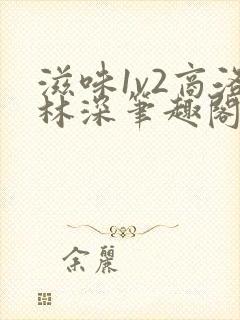 滋味1v2高洛
林深笔趣阁
余丽